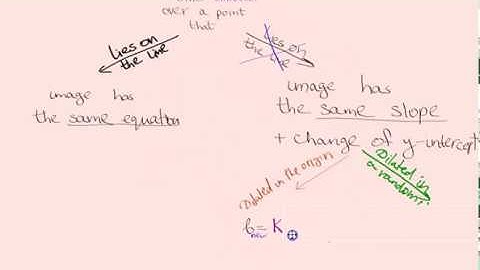 over a point
that
lies on
the line
lies on
the line
image has
the same equation
image has
the same slope
+ change of y-intercept
Dilated in the origin
Dilated in
a random
b new = K